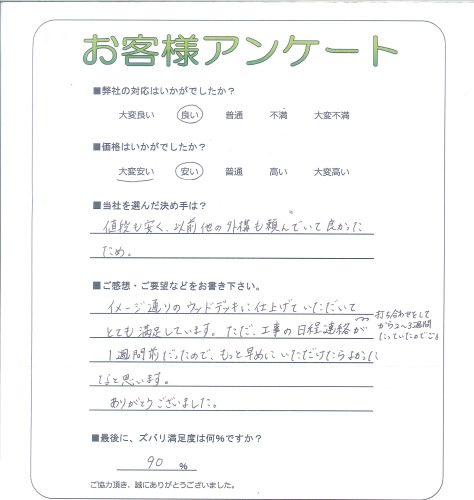 お客様アンケート
■弊社の対応はいかがでしたか？
大変良い 良い 普通 不満 大変不満
■価格はいかがでしたか？
大変安い 安い 普通 高い 大変高い
■当社を選んだ決め手は？
値段も安く、以前他の外構も頼んでいて良かった
ため。
■ご感想・ご要望などをお書き下さい。
イメージ通りのウッドデッキに仕上げていただいて
とても満足しています。ただ、工事の日程連絡が
打ち合わせをして
から2〜3週間
たっていたのでご
1週間前だったので、もっと早めにいただけたらよかった
なと思います。
ありがとうございました。
■最後に、ズバリ満足度は何%ですか？
90 %
ご協力頂き、誠にありがとうございました。